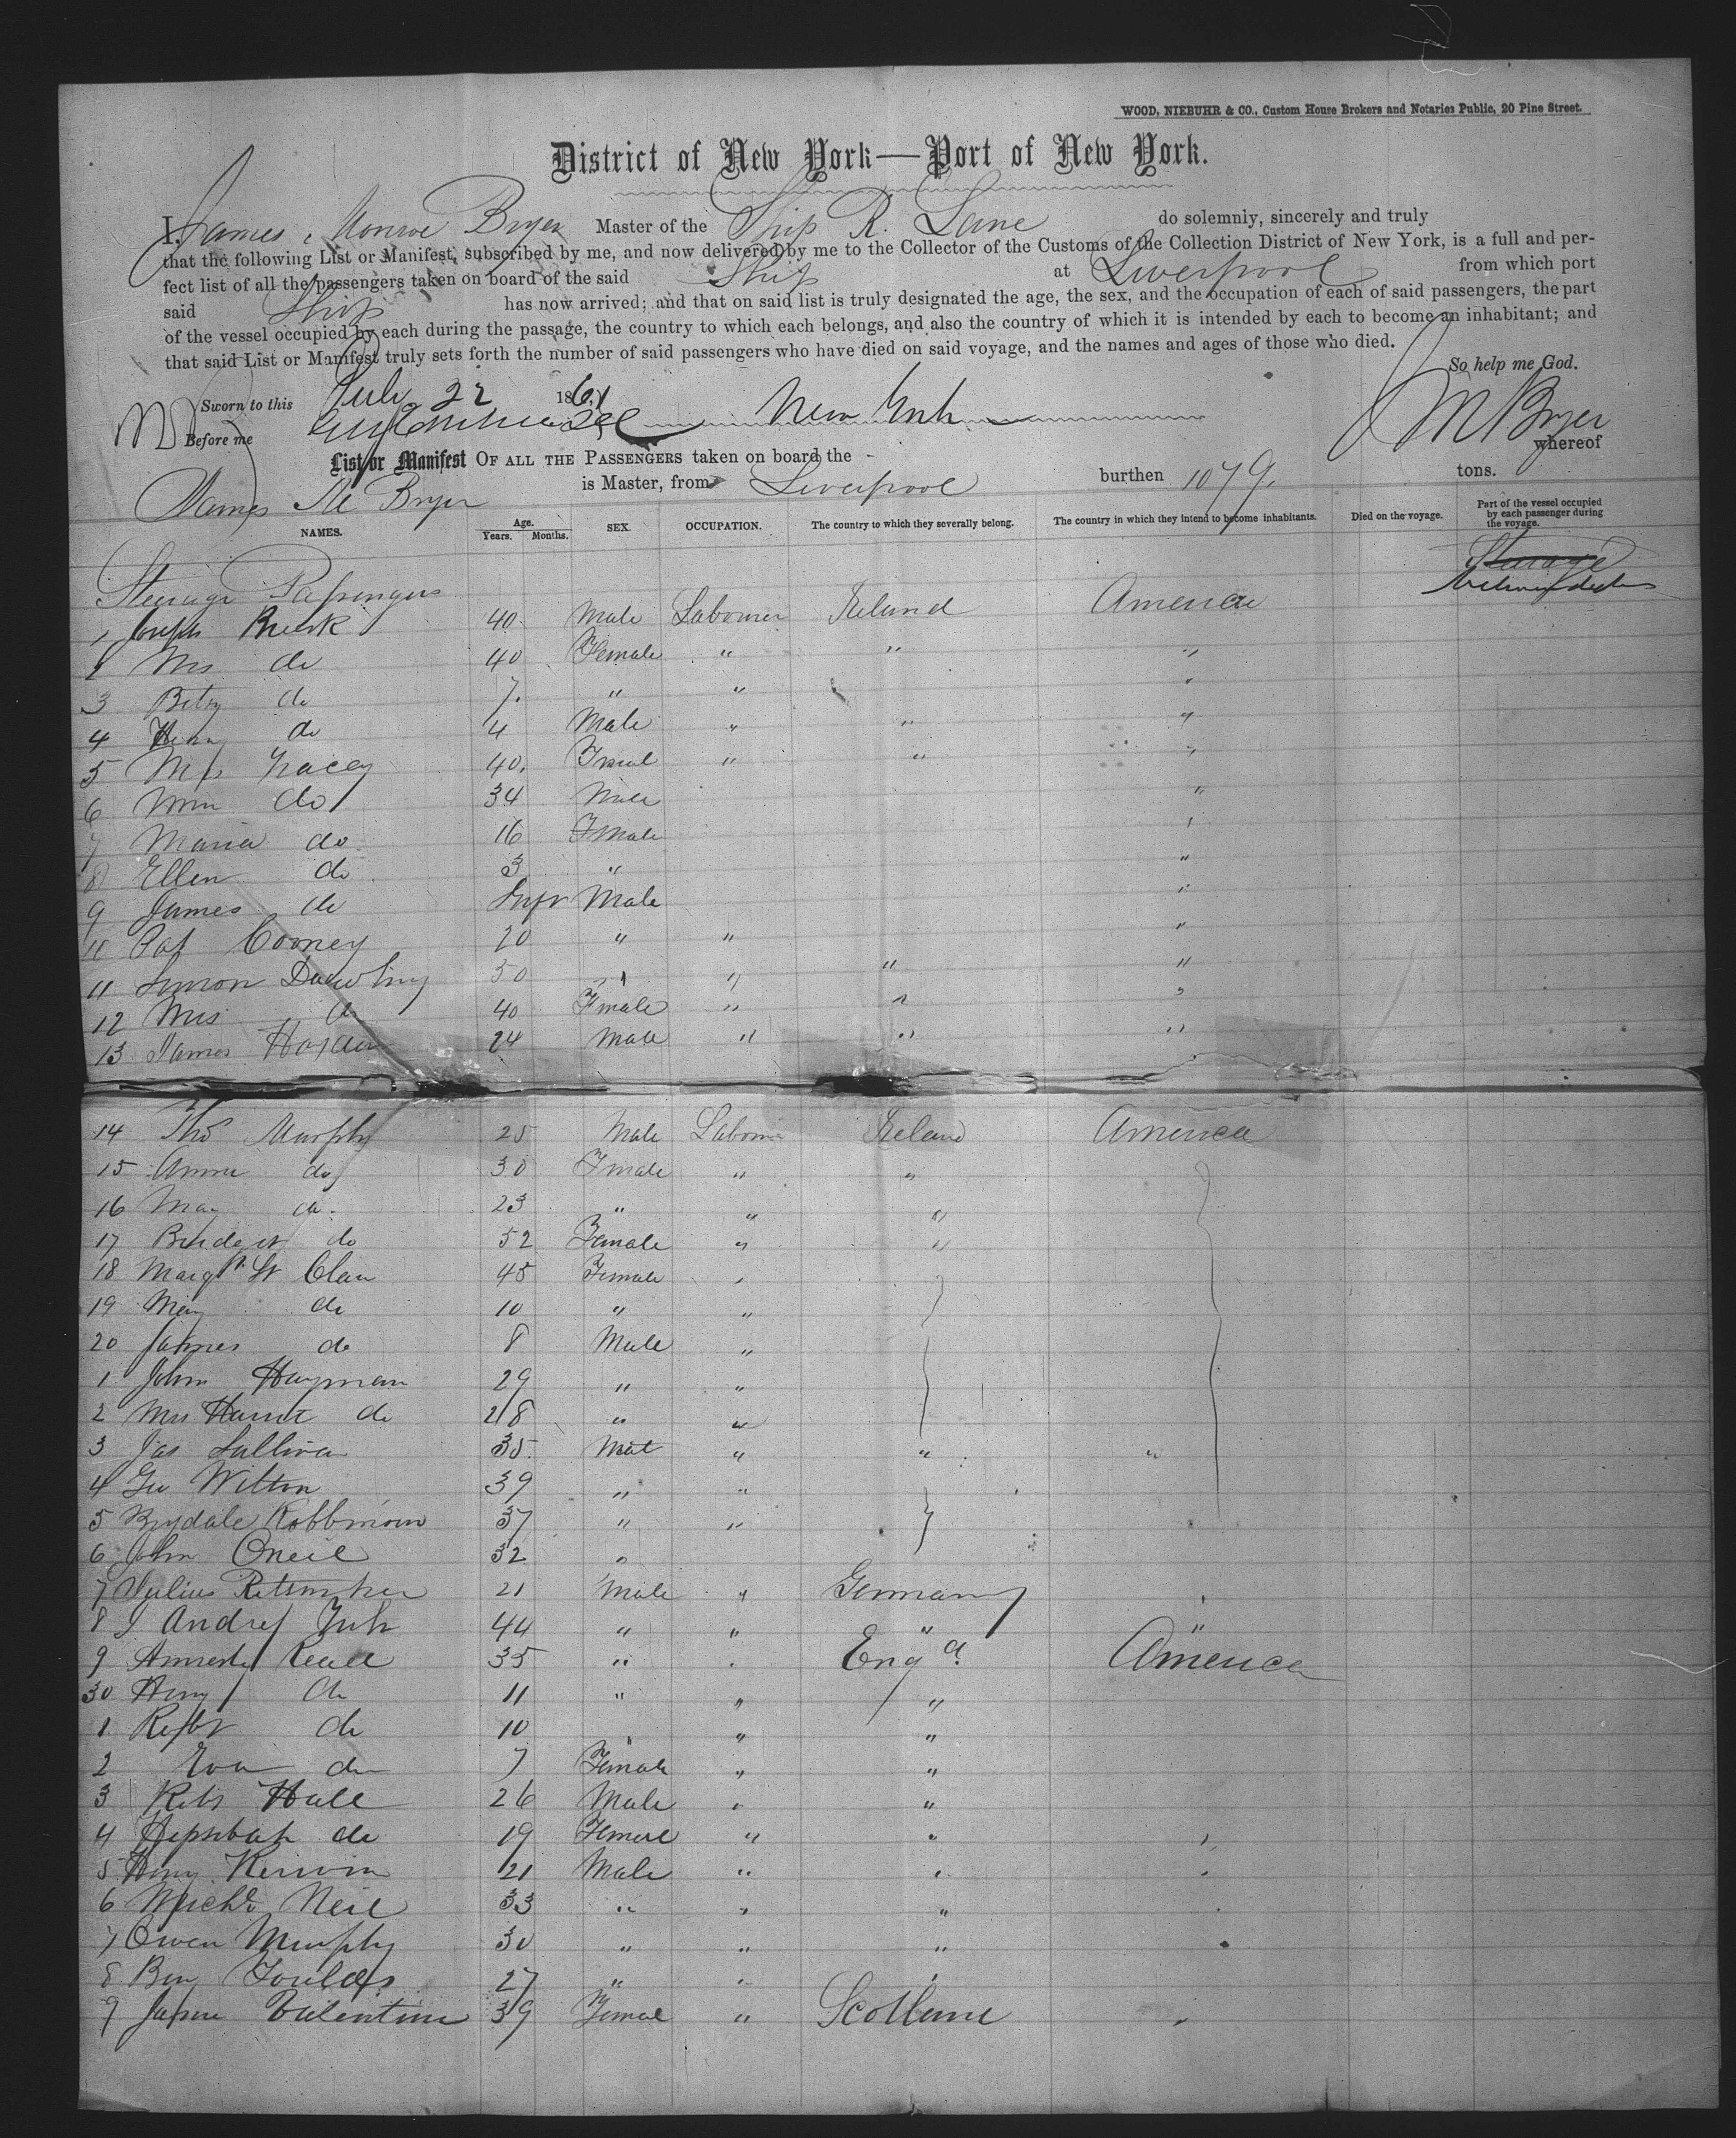 WOOD, NIEBUHR & CO., Custom House Brokers and Notaries Public, 20 Pine Street.
District of New York—Port of New York.
I, James Monroe Bryer Master of the Ship R. Lane do solemnly, sincerely and truly
that the following List or Manifest, subscribed by me, and now delivered by me to the Collector of the Customs of the Collection District of New York, is a full and per-
fect list of all the passengers taken on board of the said Ship at Liverpool from which port
said Ship has now arrived; and that on said list is truly designated the age, the sex, and the occupation of each of said passengers, the part
of the vessel occupied by each during the passage, the country to which each belongs, and also the country of which it is intended by each to become an inhabitant; and
that said List or Manifest truly sets forth the number of said passengers who have died on said voyage, and the names and ages of those who died.
So help me God.
Sworn to this July 22 1861 New York
J M Bryer
Before me
List or Manifest OF ALL THE PASSENGERS taken on board the whereof
James M Bryer is Master, from Liverpool burthen 1079 tons.
NAMES. Age. Years. Months. SEX. OCCUPATION. The country to which they severally belong. The country in which they intend to become inhabitants. Died on the voyage. Part of the vessel occupied by each passenger during the voyage.
Steerage Passengers Steerage
1 Joseph 40 Male Labourer Ireland America
2 Mrs do 40 Female " " "
3 Betsy do 7 " " "
4 Henry do 4 Male " " "
5 Mrs Tracey 40 Femal " " "
6 Wm do 34 Male "
7 Maria do 16 Female "
8 Ellen do 3 " "
9 James do Inft Male "
10 Pat Cooney 20 " " "
11 Simon Dowling 50 " " " "
12 Mrs do 40 Female " " "
13 James Hayden 24 Male " " "
14 Thos Murphy 25 Male Labourer Ireland America
15 Anne do 30 Female " "
16 Mary do 23 " " "
17 Bridget do 52 Female " "
18 Margt St Clair 45 Female "
19 Mary do 10 " "
20 James do 8 Male "
1 John Hayman 29 " "
2 Mrs Harriet do 28 " "
3 Jas Sullivan 35 Male " " "
4 Geo Wilton 39 " "
5 37 " "
6 John Oneil 32 "
7 Julius 21 Male " Germany
8 44 " " " "
9 35 " " Engd America
30 Henry do 11 " " "
1 Robt do 10 " "
2 Eva do 7 Female " "
3 Robt Hall 26 Male " "
4 Hepzibah do 19 Female " " "
5 Henry Kerwin 21 Male " " "
6 Michl Neil 33 " " "
7 Owen Murphy 30 " " "
8 Benj Foulds 27 " " "
9 Jane Valentine 39 Femal " Scotland "